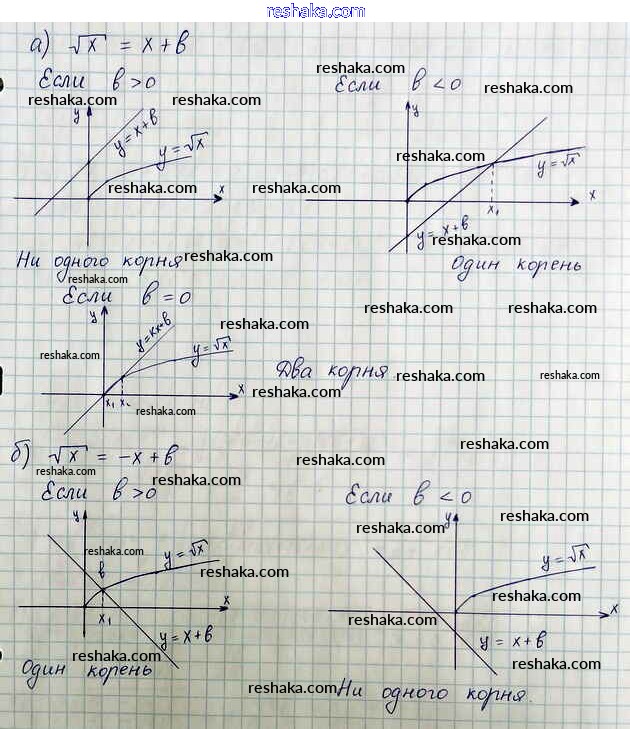 reshaka.com
а) √x = x + b
Если b > 0
Если b < 0
reshaka.com
reshaka.com
reshaka.com
reshaka.com
reshaka.com
y
y = x + b
y = √x
x
reshaka.com
reshaka.com
reshaka.com
y
y = √x
x
x₁
y = x + b
Ни одного корня
reshaka.com
reshaka.com
Один корень
reshaka.com
Если b = 0
reshaka.com
reshaka.com
reshaka.com
y
y = √x
x
x₁ x₂
reshaka.com
reshaka.com
reshaka.com
reshaka.com
reshaka.com
Два корня
б) √x = -x + b
reshaka.com
reshaka.com
reshaka.com
reshaka.com
Если b > 0
Если b < 0
reshaka.com
reshaka.com
y
b
y = √x
x
x₁
y = x + b
reshaka.com
reshaka.com
y
y = √x
x
y = x + b
reshaka.com
reshaka.com
reshaka.com
reshaka.com
Один корень
reshaka.com
Ни одного корня.